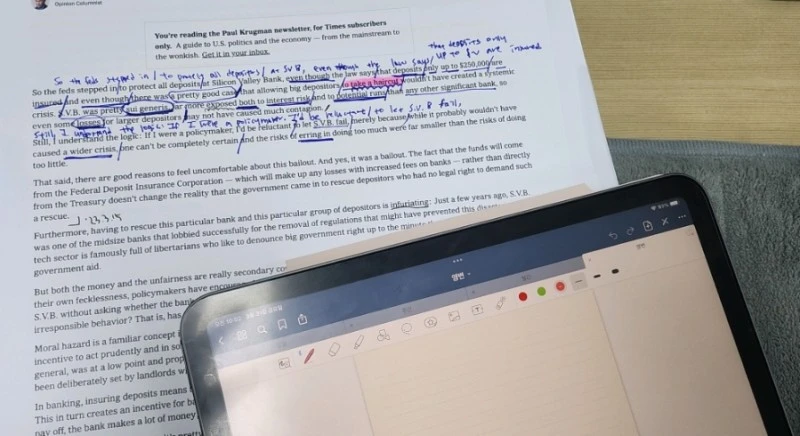 Opinion Columnist
You're reading the Paul Krugman newsletter, for Times subscribers
only. A guide to U.S. politics and the economy — from the mainstream to
the wonkish. Get it in your inbox.
that deposits only
So the feds stepped in / to protect all depositors / at S.V.B, even though the law says / up to are insured
So the feds stepped in to protect all deposits at Silicon Valley Bank, even though the law says that deposits only up to $250,000 are
insured and even though there was a pretty good case that allowing big depositors to take a haircut wouldn't have created a systemic
crisis. S.V.B. was pretty sui generis, far more exposed both to interest risk and to potential runs than any other significant bank, so
even some losses for larger depositors may not have caused much contagion.
Still, I understand the logic: If I were a policymaker, I'd be reluctant / to let S.V.B fail,
Still, I understand the logic: If I were a policymaker, I'd be reluctant to let S.V.B. fail, merely because while it probably wouldn't have
caused a wider crisis, one can't be completely certain and the risks of erring in doing too much were far smaller than the risks of doing
too little.
That said, there are good reasons to feel uncomfortable about this bailout. And yes, it was a bailout. The fact that the funds will come
from the Federal Deposit Insurance Corporation — which will make up any losses with increased fees on banks — rather than directly
from the Treasury doesn't change the reality that the government came in to rescue depositors who had no legal right to demand such
a rescue.
Furthermore, having to rescue this particular bank and this particular group of depositors is infuriating: Just a few years ago, S.V.B.
was one of the midsize banks that lobbied successfully for the removal of regulations that might have prevented this
tech sector is famously full of libertarians who like to denounce big government right up to the
government aid.
But both the money and the unfairness are really secondary
their own fecklessness, policymakers have
S.V.B. without asking whether the bank
irresponsible behavior? That is, has
Moral hazard is a familiar concept
incentive to act prudently and in
general, was at a low point and
been deliberately set by landlords
In banking, insuring deposits means
This in turn creates an incentive for
pay off, the bank makes a lot of money